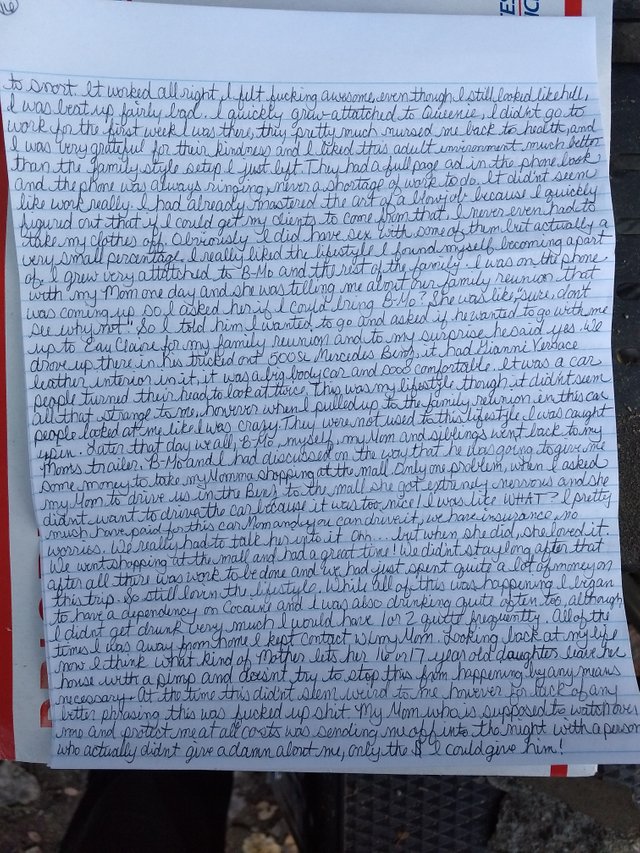 to snort. It worked all right, I felt fucking awesome, even though I still looked like hell,
I was beat up fairly bad. I quickly grew attatched to Queenie, I didnt go to
work for the first week I was there, they pretty much nursed me back to health, and
I was very grateful for their kindness and I liked this adult environment much better
than the family style setup I just left. They had a full page ad in the phone book
and the phone was always ringing, never a shortage of work to do. It didn't seem
like work really. I had already mastered the art of a blow job because I quickly
figured out that if I could get my clients to come from that, I never even had to
take my clothes off. Obviously I did have sex with some of them but actually a
very small percentage. I really liked the lifestyle I found myself becoming a part
of. I grew very attatched to B-Mo and the rest of the family. I was on the phone
with my Mom one day and she was telling me about our family reunion that
was coming up so I asked her if I could bring B-Mo? She was like, "sure, dont
see why not". So I told him I wanted to go and asked if he wanted to go with me
up to Eau Claire for my family reunion and to my surprise he said yes. We
drove up there in his tricked out 500SE Mercedes Benz, it had Gianni Versace
leather interior in it, it was a big body car and sooo comfortable. It was a car
people turned their head to look at twice. This was my lifestyle though, it didn't seem
all that strange to me, however when I pulled up to the family reunion in this car
people looked at me like I was crazy. They were not used to this lifestyle I was caught
up in. Later that day we all, B-Mo, myself, my Mom and siblings went back to my
Moms trailer. B-Mo and I had discussed on the way that he was going to give me
some money to take my Momma shopping at the mall. Only one problem, when I asked
my Mom to drive us in the Benz to the mall she got extremely nervous and she
didn't want to drive the car because it was too nice! I was like WHAT? I pretty
much have paid for this car Mom and you can drive it, we have insurance, no
worries. We really had to talk her into it ... but when she did, she loved it.
We went shopping at the mall and had a great time! We didnt stay long after that
after all there was work to be done and we had just spent quite a lot of money on
this trip. So still lovin the lifestyle. While all of this was happening I began
to have a dependency on Cocaine and I was also drinking quite often too, although
I didnt get drunk very much I would have 1 or 2 quite frequently. All of the
times I was away from home I kept contact w/ my Mom. Looking back at my life
now I think what kind of Mother lets her 16 or 17 year old daughter leave her
house with a pimp and doesnt try to stop this from happening by any means
necessary. At the time this didn't seem weird to me however for lack of any
better phrasing this was fucked up shit. My Mom who is supposed to watch over
me and protect me at all costs was sending me off into the night with a person
who actually didnt give a damn about me, only the $ I could give him!